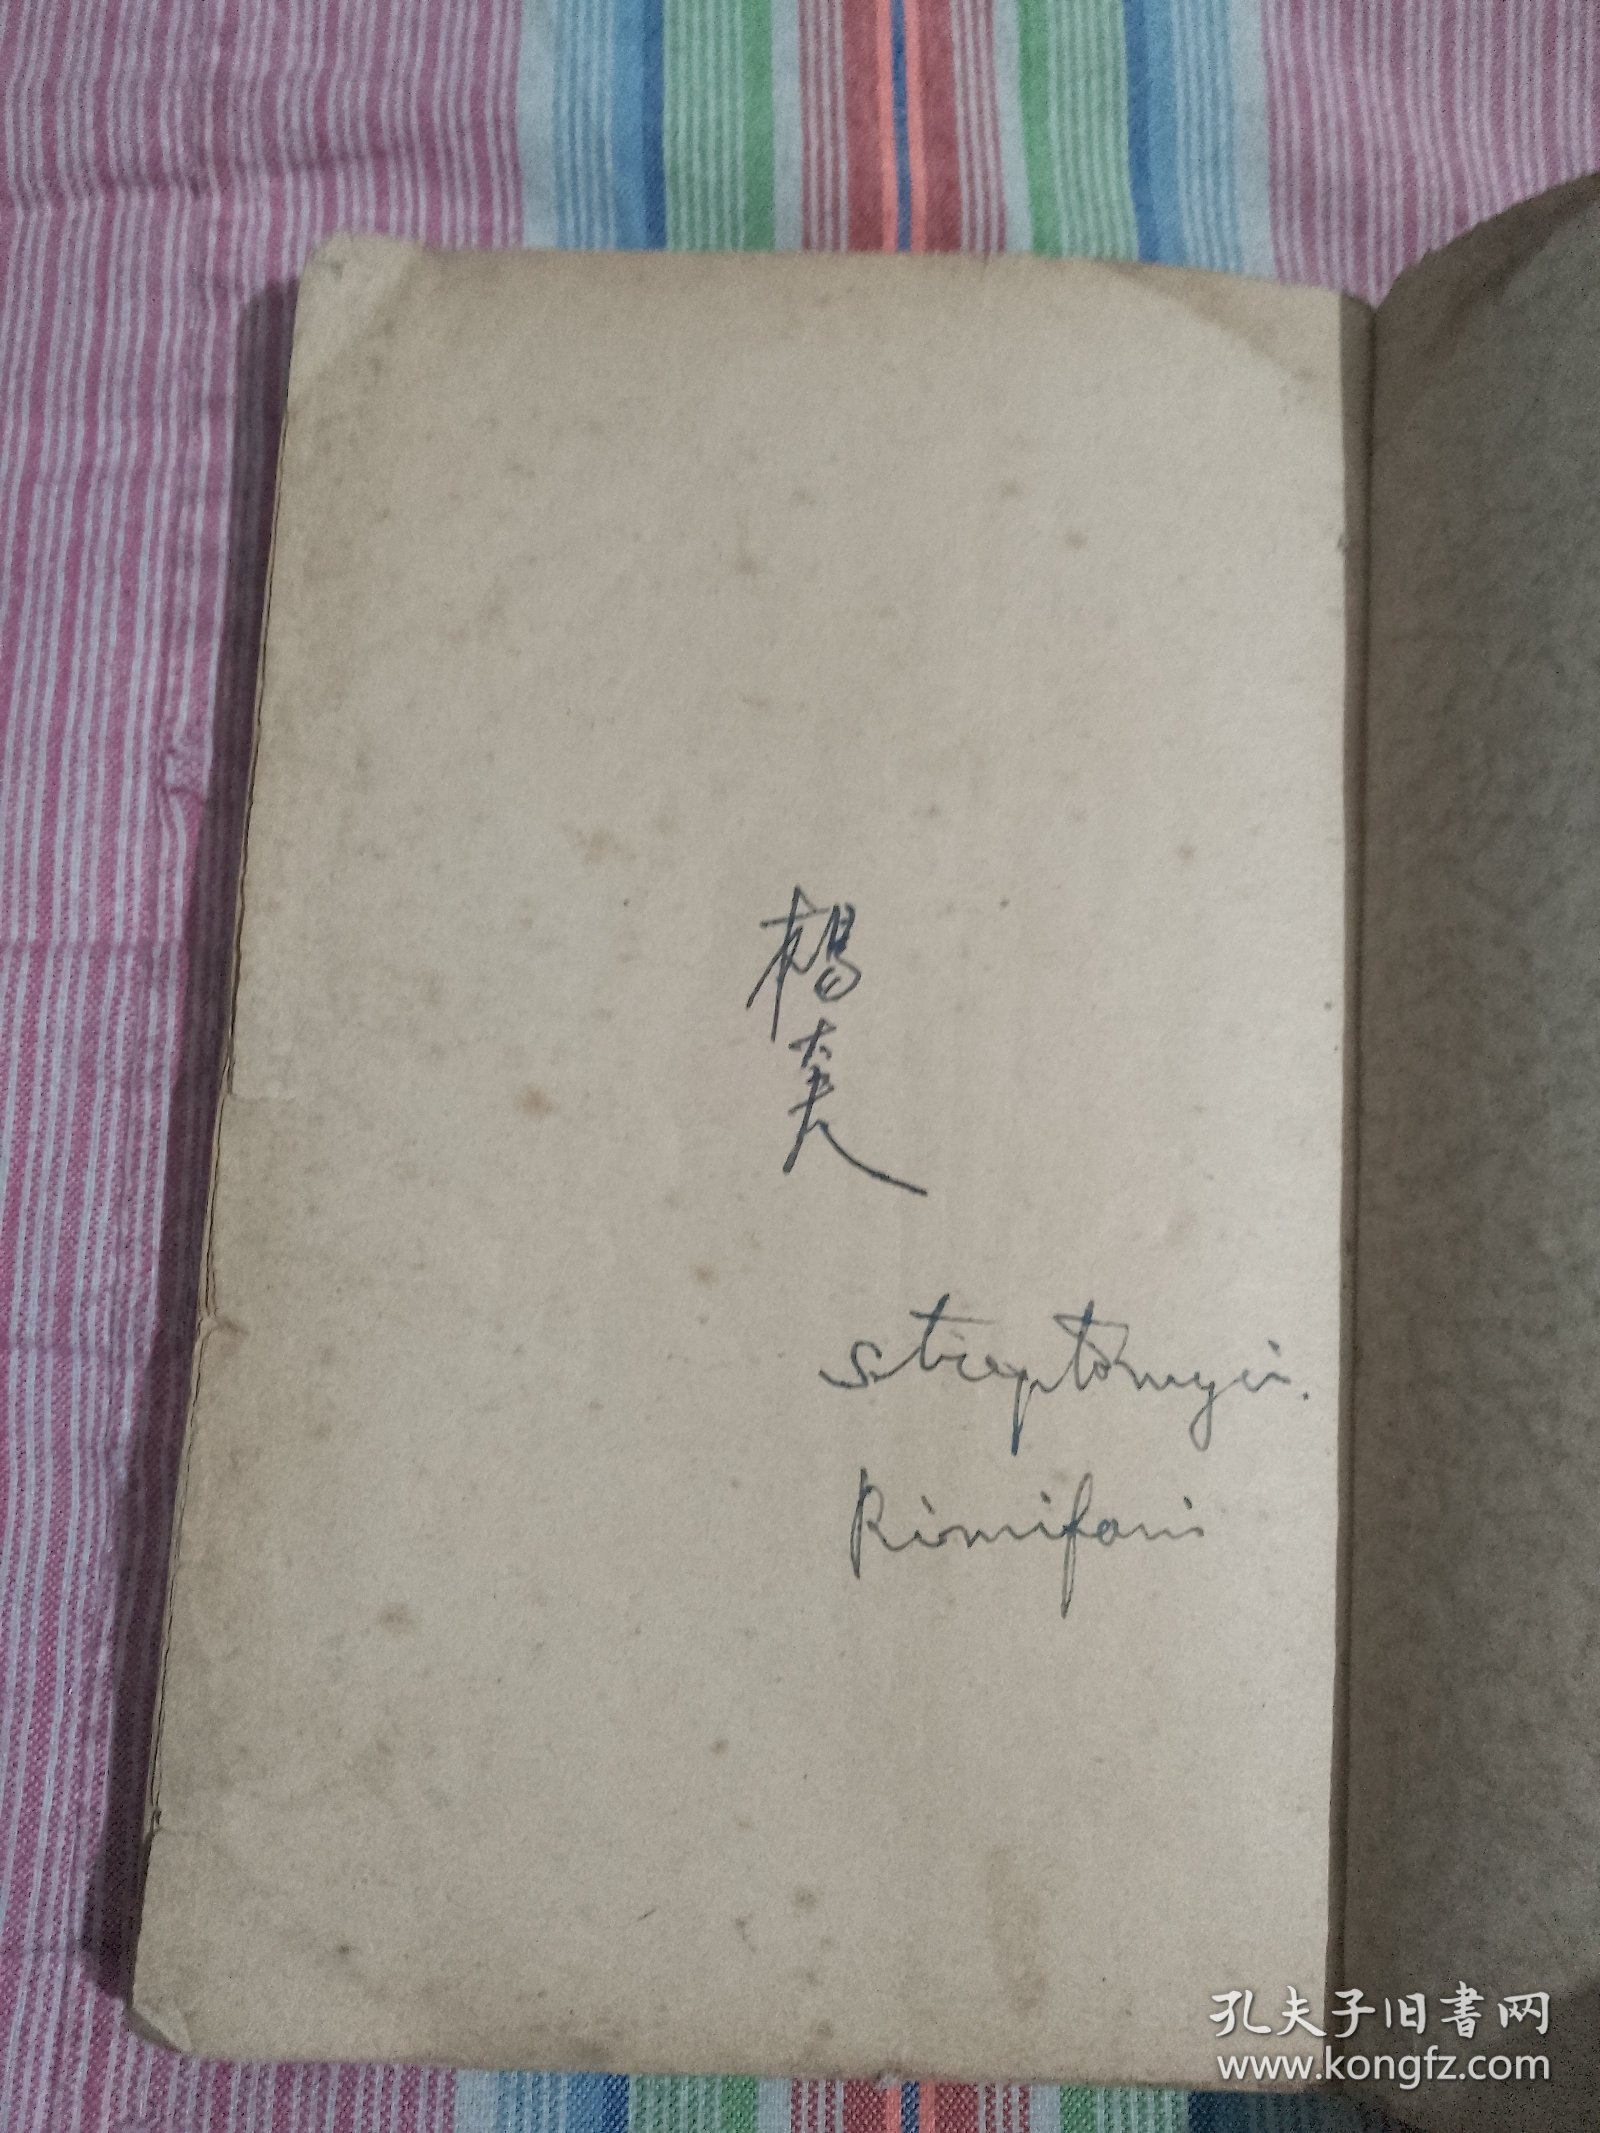 楊
streptomycin.
Rimifon
孔夫子旧書网
www.kongfz.com